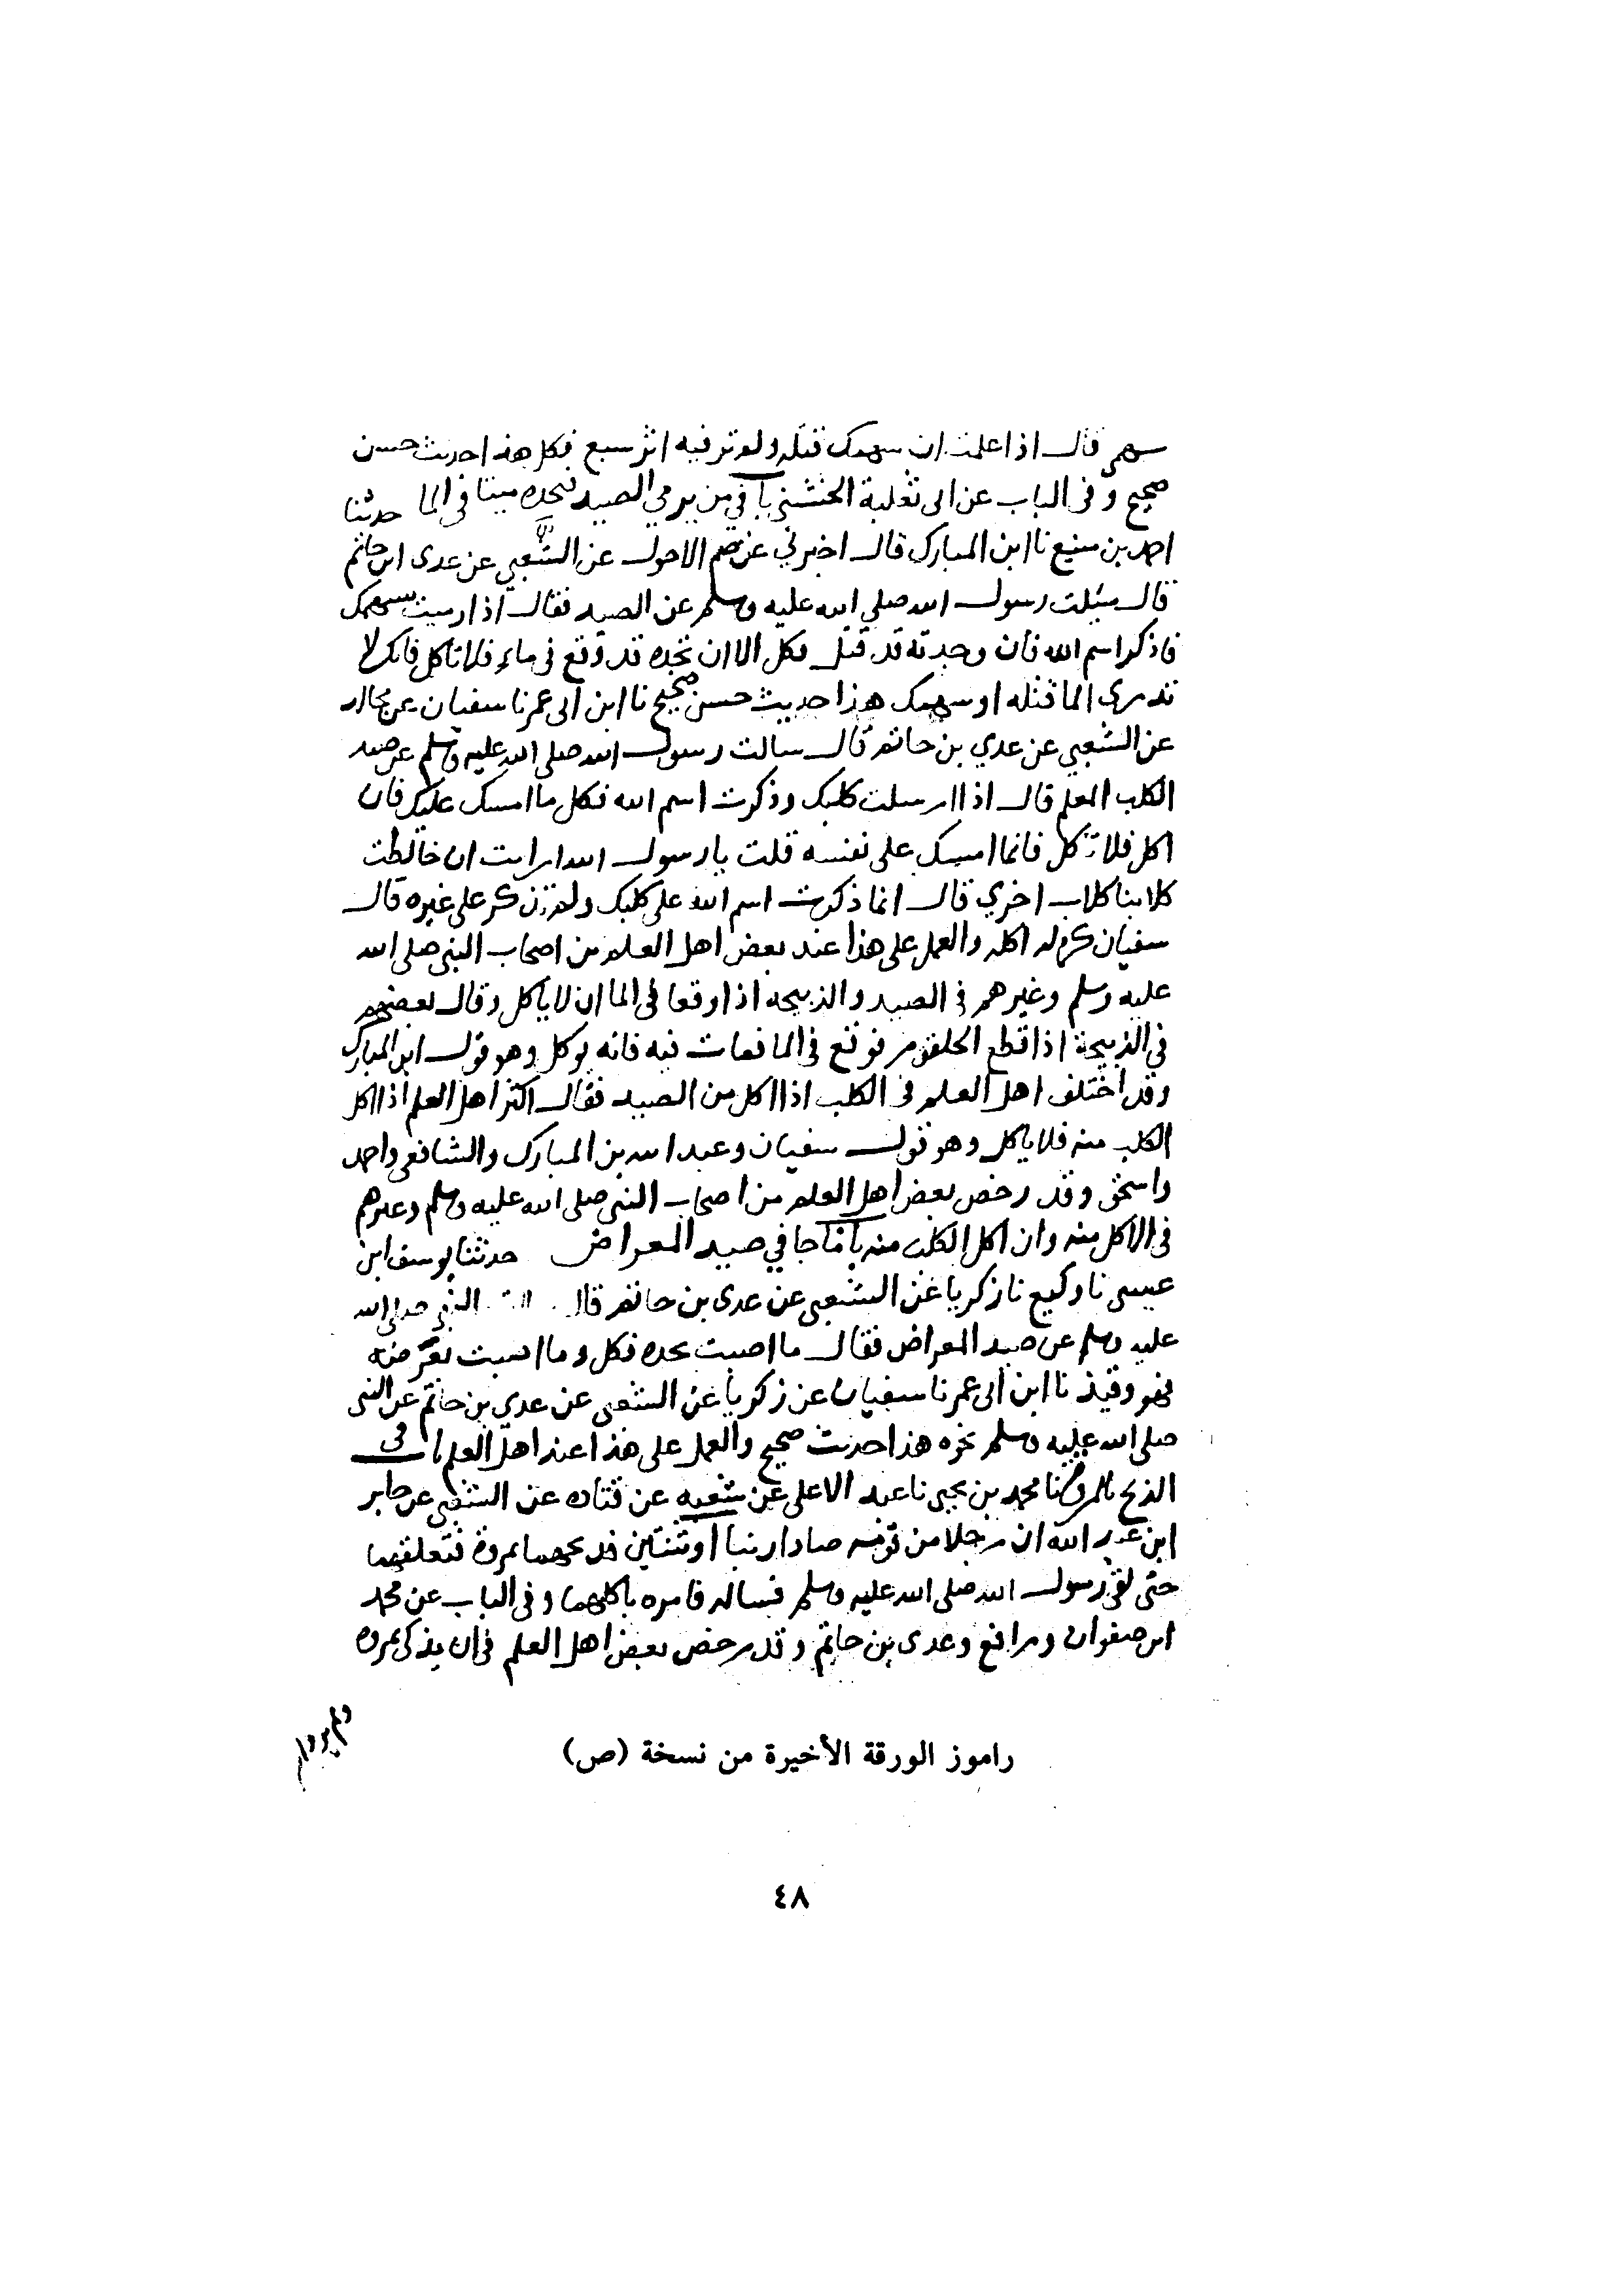 سهمي قال اذا علمت ان سهمك قتله ولم تر فيه اثر سبع فكل هذا حديث حسن
صحيح وفي الباب عن ابي ثعلبة الخشني باب في من يرمي الصيد فيجده ميتا في الما حدثنا
احمد بن منيع نا ابن المبارك قال اخبرني عاصم الاحول عن الشعبي عن عدى ابن حاتم
قال سئلت رسول الله صلى الله عليه وسلم عن الصيد فقال اذا رميت سهمك
فاذكر اسم الله فان وجدته قد قتل فكل الا ان تجده قد وقع في ماء فلا تاكل فانك لا
تدرى الما قتله او سهمك هذا حديث حسن صحيح نا ابن ابى عمر نا سفيان عن مجالد
عن الشعبي عن عدي بن حاتم قال سالت رسول الله صلى الله عليه وسلم عن صيد
الكلب المعلم قال اذا ارسلت كلبك وذكرت اسم الله فكل ما امسك عليك فان
اكل فلا تاكل فانما امسك على نفسه قلت يا رسول الله ارايت ان خالطت
كلابنا كلاب اخري قال انما ذكرت اسم الله على كلبك ولم تذكر على غيره قال
سفيان كره له اكله والعمل على هذا عند بعض اهل العلم من اصحاب النبي صلى الله
عليه وسلم وغيرهم في الصيد والذبيحه اذا وقعا في الما ان لا ياكل وقال بعضهم
في الذبيحة اذا قطع الحلقوم فوقع في الما فمات فيه فانه يوكل وهو قول ابن المبارك
وقد اختلف اهل العلم في الكلب اذا اكل من الصيد فقال اكثر اهل العلم اذا اكل
الكلب منه فلا ياكل وهو قول سفيان وعبد الله بن المبارك والشافعي واحمد
واسحق وقد رخص بعض اهل العلم من اصحاب النبي صلى الله عليه وسلم وغيرهم
في الاكل منه وان اكل الكلب منه باب ما جا في صيد المعراض حدثنا يوسف ابن
عيسى نا وكيع نا زكريا عن الشعبي عن عدى بن حاتم قال النبي صلى الله
عليه وسلم عن صيد المعراض فقال ما اصبت بحده فكل وما اصبت بعرضه
فهو وقيذ نا ابن ابى عمر نا سفيان عن زكريا عن الشعبي عن عدي بن حاتم عن النبى
صلى الله عليه وسلم نحوه هذا حديث صحيح والعمل على هذا عند اهل العلم باب في
الذبح بالمروة نا محمد بن يحيى نا عبد الاعلى عن شعبه عن قتاده عن الشعبي عن جابر
ابن عبد الله ان رجلا من قومه صاد ارنبا او ثنتين فذبحهما بمروة فتعلقهما
حتى لقي رسول الله صلى الله عليه وسلم فساله فامره باكلهما وفي الباب عن محمد
ابن صفوان ورافع وعدى بن حاتم وقد رخص بعض اهل العلم في ان يذكى بمروه
راموز الورقة الأخيرة من نسخة (ص)
٤٨